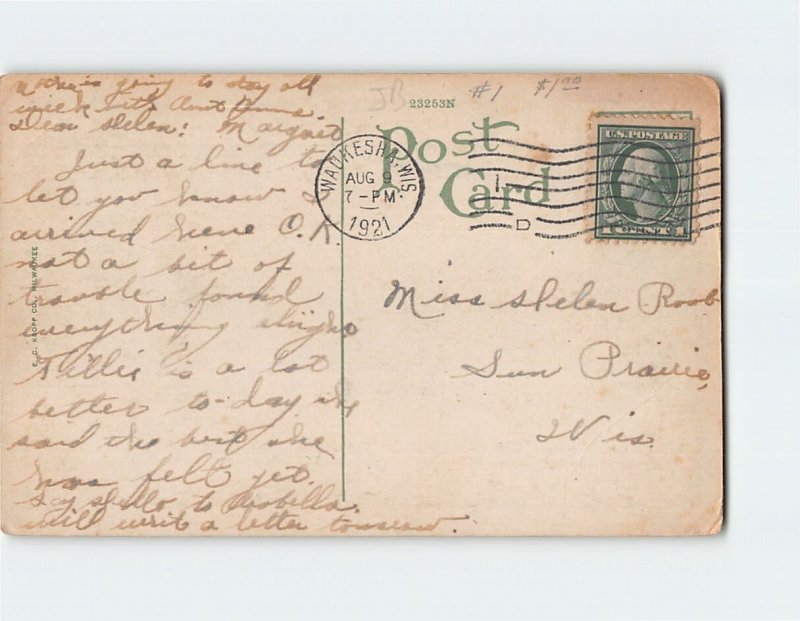 Mother is going to stay all
week with Aunt Anna.
Dear Helen: Margret
Just a line to
let you know I
arrived here O.K.
not a bit of
trouble found
everything alright
Tillie is a lot
better to-day she
said the best she
has felt yet.
Say Hello to
will write a letter tomorrow.
E. C. KROPP CO., MILWAUKEE
JB
23253N
#1 $1.00
Post
Card
WAUKESHA, WIS.
AUG 9
7-PM
1921
1
D
U.S. POSTAGE
1 CENT 1
Miss Helen Roob
Sun Prairie,
Wis.